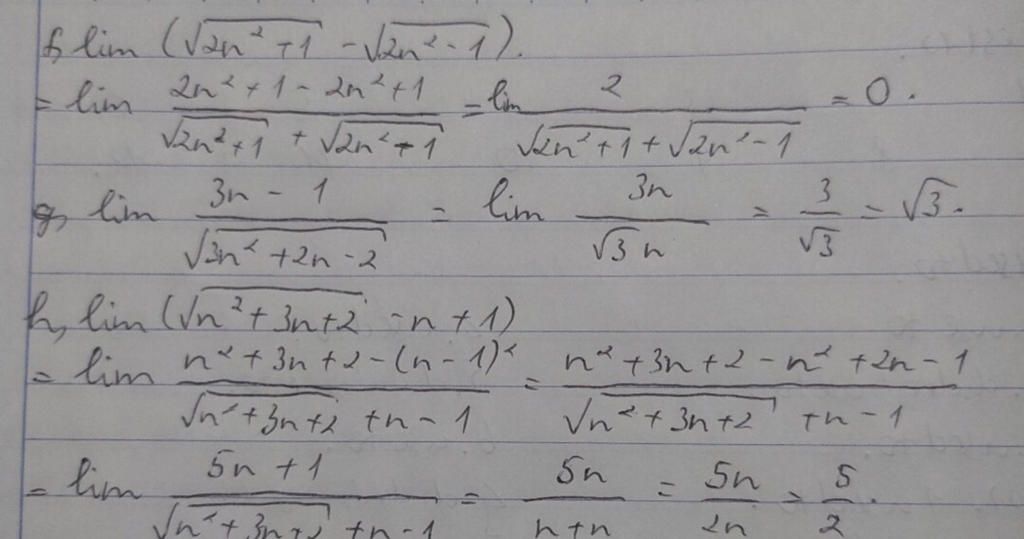 f, lim (√(2n² + 1) - √(2n² - 1)).
= lim (2n² + 1 - 2n² + 1)/(√(2n² + 1) + √(2n² - 1)) = lim 2/(√(2n² + 1) + √(2n² - 1)) = 0.
g, lim (3n - 1)/√(3n² + 2n - 2) = lim 3n/(√3 n) = 3/√3 = √3.
h, lim (√(n² + 3n + 2) - n + 1)
= lim (n² + 3n + 2 - (n - 1)²)/(√(n² + 3n + 2) + n - 1) = (n² + 3n + 2 - n² + 2n - 1)/(√(n² + 3n + 2) + n - 1)
= lim (5n + 1)/(√(n² + 3n + 2) + n - 1) = 5n/(n + n) = 5n/2n = 5/2.